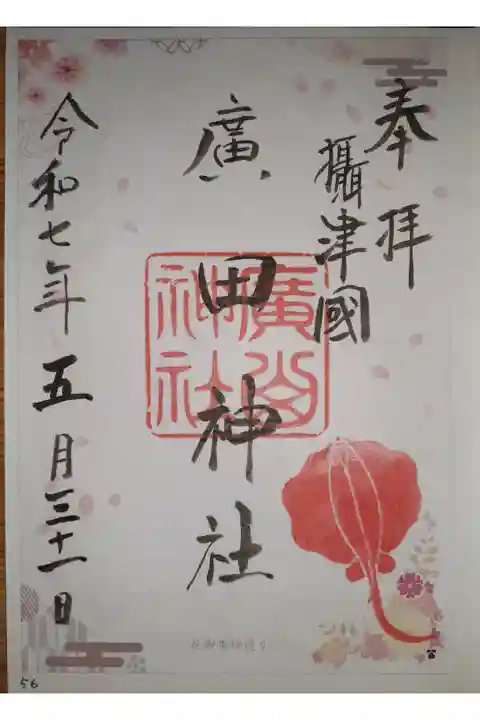 奉拝
攝津國
廣田神社
令和七年五月三十一日
56